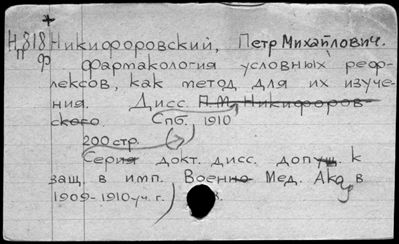 Н 818 Никифоровский, Петр Михайлович.
П Ф фармакология условных реф-
лексов, как метод для их изуче-
ния. Дисс. П. М. Никифоров-
ского Спб. 1910
200 стр.
Серия докт. дисс. допущ. к
защ. в имп. Военно Мед. Ака в
1909-1910 уч. г.